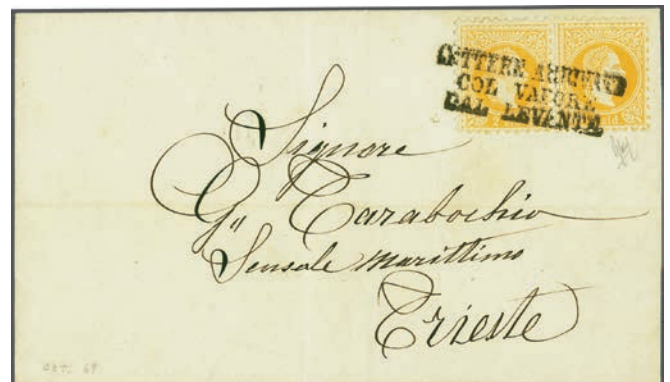 LETTERE ARRIVATE
COL VAPORE
DAL LEVANTE
Signore
G" Tarabochia
Sensale Marittimo
Trieste